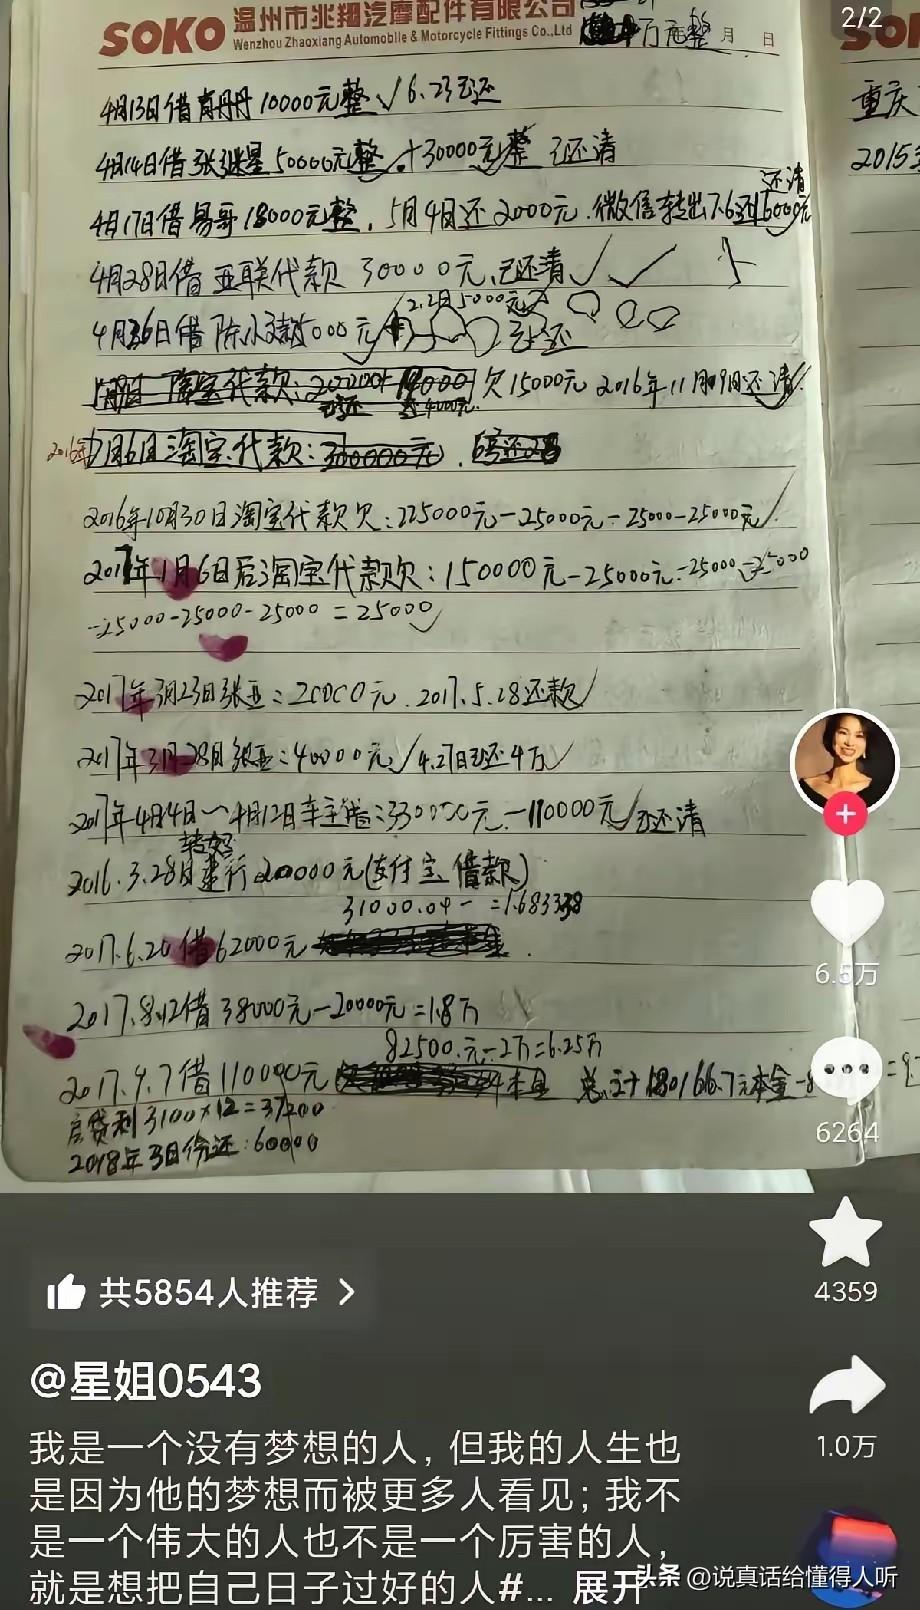 2/2
SOKO 温州市兆翔汽摩配件有限公司
Wenzhou Zhaoxiang Automobile & Motorcycle Fittings Co.,Ltd
万元整 月 日
4月13日借肖丹丹10000元整√6.23已还
4月14日借张继星50000元整 +30000元整 已还清
还清
4月17日借易哥18000元整,5月4日还2000元.微信转出7.6还16000元
4月28日借亚联代款 30000元已还清√
2.2月5000元
4月26日借陈小 000元 已还
淘宝代款: 欠15000元 2016年11月9日还清
2016年7月6日淘宝代款:300000元.
2016年10月30日淘宝代款欠:225000元-25000元-25000-25000元
2017年1月6日后淘宝代款欠:150000元-25000元-25000-25000
-25000-25000-25000=25000
2017年3月23日张亚:20000元.2017.5.28还款
2017年3月28日张亚:40000元√4.27日已还4万
2017年4月4日~4月12日车主 :330000元-110000元√已还清
转妈
2016.3.28日建行20000元(支付宝借款)
31000.04- =1.6833
2017.6.20借62000元
2017.8.12借38000元-20000元=1.8万
82500.元-2万=6.25万
2017.9.7借110000元 总计180166.7元本金
房贷利3100×12=37200
2018年3日 还:60000
SO
重庆
2015
6.5万
6264
4359
1.0万
共5854人推荐 >
@星姐0543
我是一个没有梦想的人,但我的人生也
是因为他的梦想而被更多人看见;我不
是一个伟大的人也不是一个厉害的人,
就是想把自己日子过好的人#... 展开
头条 @说真话给懂得人听